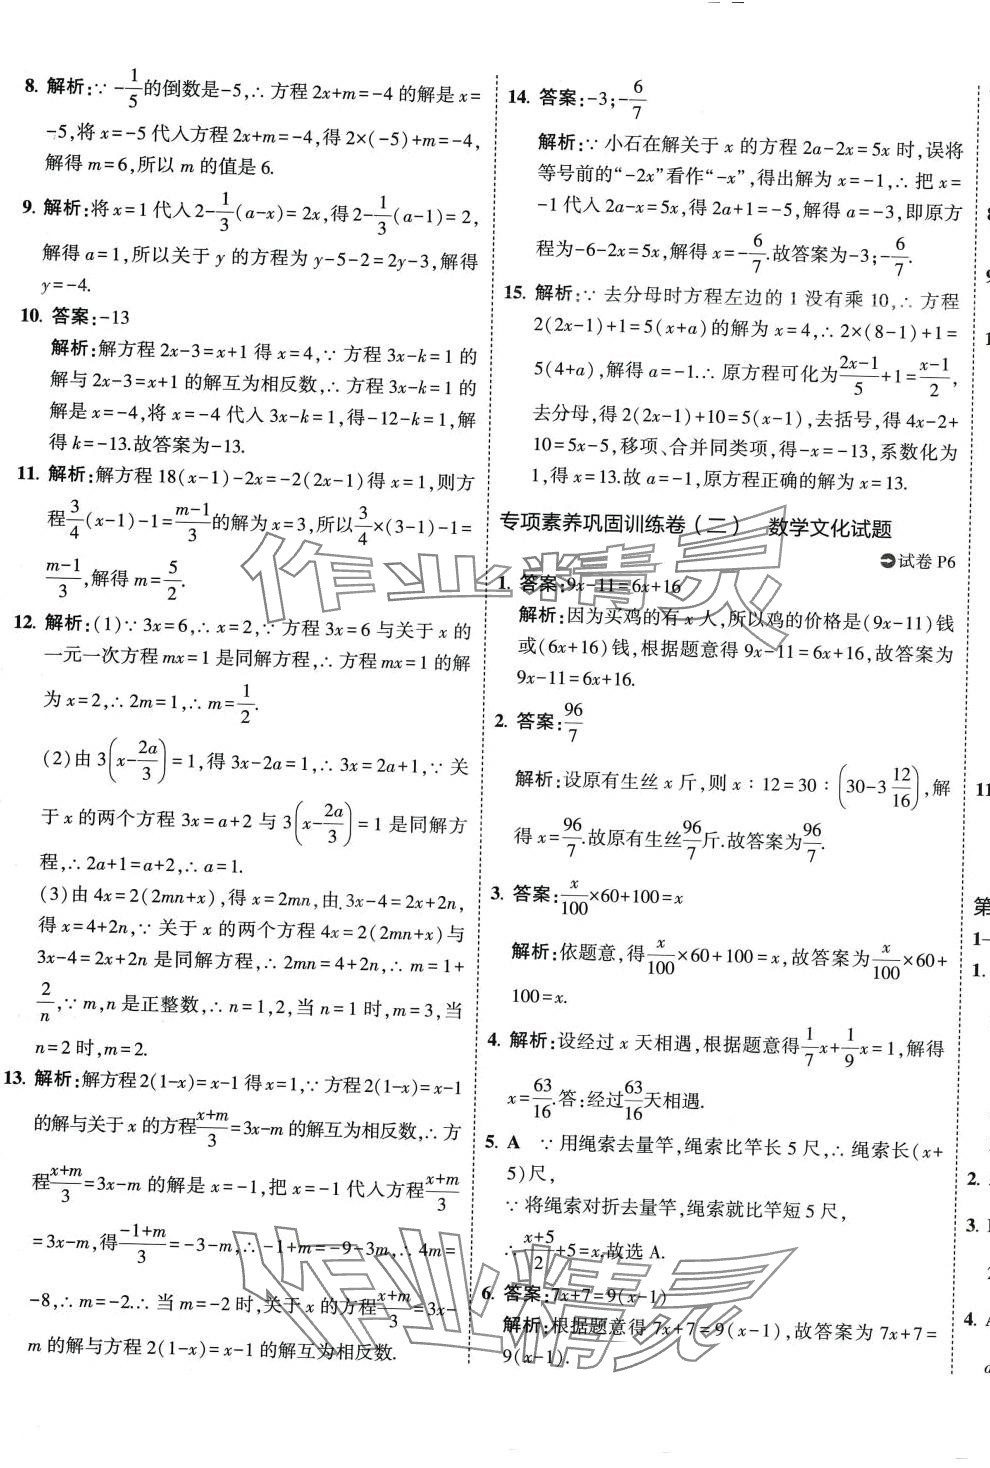 8. 解析:∵ -1/5的倒数是-5,∴ 方程 2x+m=-4 的解是 x=
-5,将 x=-5 代入方程 2x+m=-4,得 2×(-5)+m=-4,
解得 m=6,所以 m 的值是 6.
9. 解析:将 x=1 代入 2-1/3(a-x)=2x,得 2-1/3(a-1)=2,
解得 a=1,所以关于 y 的方程为 y-5-2=2y-3,解得
y=-4.
10. 答案:-13
解析:解方程 2x-3=x+1 得 x=4,∵ 方程 3x-k=1 的
解与 2x-3=x+1 的解互为相反数,∴ 方程 3x-k=1 的
解是 x=-4,将 x=-4 代入 3x-k=1,得-12-k=1,解
得 k=-13.故答案为-13.
11. 解析:解方程 18(x-1)-2x=-2(2x-1)得 x=1,则方
程3/4(x-1)-1=(m-1)/3的解为 x=3,所以3/4×(3-1)-1=
(m-1)/3,解得 m=5/2.
12. 解析:(1)∵ 3x=6,∴ x=2,∵ 方程 3x=6 与关于 x 的
一元一次方程 mx=1 是同解方程,∴ 方程 mx=1 的解
为 x=2,∴ 2m=1,∴ m=1/2.
(2)由 3(x-2a/3)=1,得 3x-2a=1,∴ 3x=2a+1,∵ 关
于 x 的两个方程 3x=a+2 与 3(x-2a/3)=1 是同解方
程,∴ 2a+1=a+2,∴ a=1.
(3)由 4x=2(2mn+x),得 x=2mn,由 3x-4=2x+2n,
得 x=4+2n,∵ 关于 x 的两个方程 4x=2(2mn+x)与
3x-4=2x+2n 是同解方程,∴ 2mn=4+2n,∴ m=1+
2/n,∵ m,n 是正整数,∴ n=1,2,当 n=1 时,m=3,当
n=2 时,m=2.
13. 解析:解方程 2(1-x)=x-1 得 x=1,∵ 方程 2(1-x)=x-1
的解与关于 x 的方程(x+m)/3=3x-m 的解互为相反数,∴ 方
程(x+m)/3=3x-m 的解是 x=-1,把 x=-1 代入方程(x+m)/3
=3x-m,得(-1+m)/3=-3-m,∴ -1+m=-9-3m,∴ 4m=
-8,∴ m=-2.∴ 当 m=-2 时,关于 x 的方程(x+m)/3=3x-
m 的解与方程 2(1-x)=x-1 的解互为相反数.
14. 答案:-3;-6/7
解析:∵ 小石在解关于 x 的方程 2a-2x=5x 时,误将
等号前的“-2x”看作“-x”,得出解为 x=-1,∴ 把 x=
-1 代入 2a-x=5x,得 2a+1=-5,解得 a=-3,即原方
程为-6-2x=5x,解得 x=-6/7.故答案为-3;-6/7.
15. 解析:∵ 去分母时方程左边的 1 没有乘 10,∴ 方程
2(2x-1)+1=5(x+a)的解为 x=4,∴ 2×(8-1)+1=
5(4+a),解得 a=-1.∴ 原方程可化为(2x-1)/5+1=(x-1)/2,
去分母,得 2(2x-1)+10=5(x-1),去括号,得 4x-2+
10=5x-5,移项、合并同类项,得-x=-13,系数化为
1,得 x=13.故 a=-1,原方程正确的解为 x=13.
专项素养巩固训练卷(二) 数学文化试题
试卷 P6
1. 答案:9x-11=6x+16
解析:因为买鸡的有 x 人,所以鸡的价格是(9x-11)钱
或(6x+16)钱,根据题意得 9x-11=6x+16,故答案为
9x-11=6x+16.
2. 答案:96/7
解析:设原有生丝 x 斤,则 x∶12=30∶(30-3 12/16),解
得 x=96/7.故原有生丝96/7斤.故答案为96/7.
3. 答案:x/100×60+100=x
解析:依题意,得x/100×60+100=x,故答案为x/100×60+
100=x.
4. 解析:设经过 x 天相遇,根据题意得1/7x+1/9x=1,解得
x=63/16.答:经过63/16天相遇.
5. A ∵ 用绳索去量竿,绳索比竿长 5 尺,∴ 绳索长(x+
5)尺,
∵ 将绳索对折去量竿,绳索就比竿短 5 尺,
∴(x+5)/2+5=x,故选 A.
6. 答案:7x+7=9(x-1)
解析:根据题意得 7x+7=9(x-1),故答案为 7x+7=
9(x-1).
作业精灵
作业精灵
11
第
1-
1.
2.
3.
4.